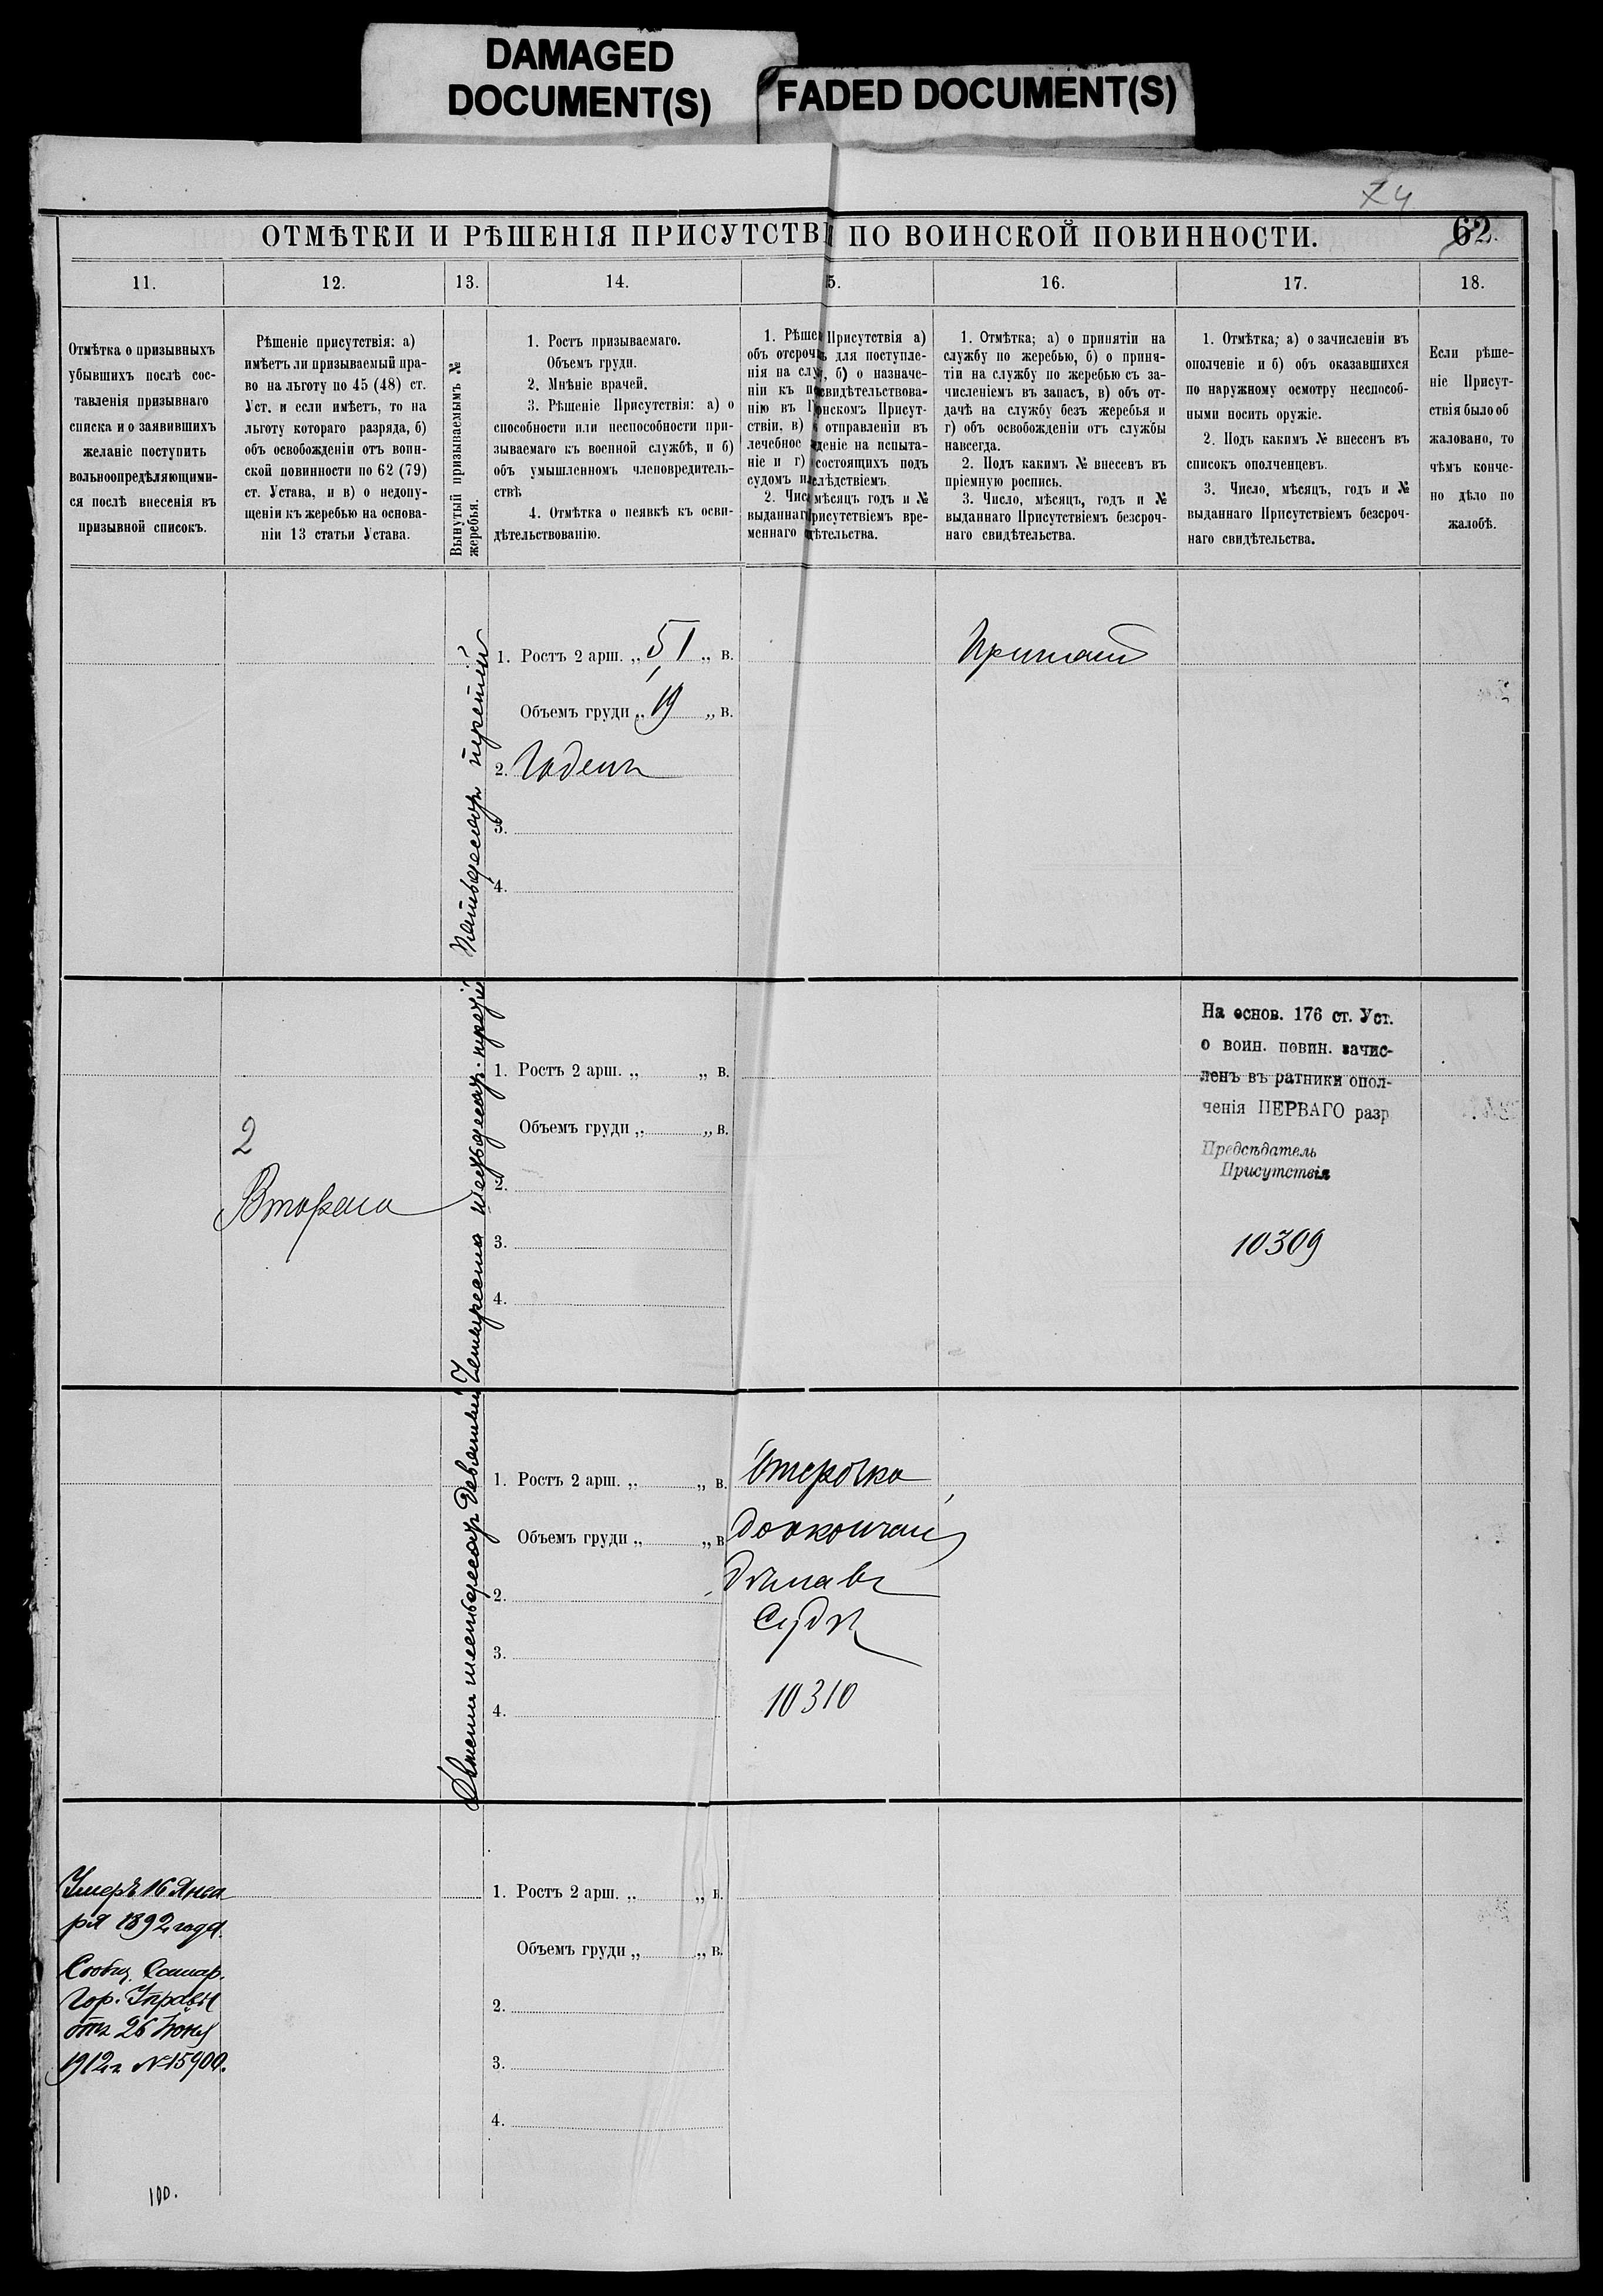 DAMAGED
DOCUMENT(S)
FADED DOCUMENT(S)
74
ОТМѢТКИ И РѢШЕНІЯ ПРИСУТСТВІ ПО ВОИНСКОЙ ПОВИННОСТИ.
62.
11.
12.
13.
14.
5.
16.
17.
18.
Отмѣтка о призывныхъ
убывшихъ послѣ сос-
тавленія призывнаго
списка и о заявившихъ
желаніе поступить
вольноопредѣляющими-
ся послѣ внесенія въ
призывной списокъ.
Рѣшеніе присутствія: а)
имѣетъ ли призываемый пра-
во на льготу по 45 (48) ст.
Уст. и если имѣетъ, то на
льготу котораго разряда, б)
объ освобожденіи отъ воин-
ской повинности по 62 (79)
ст. Устава, и в) о недопу-
щеніи къ жеребью на основа-
ніи 13 статьи Устава.
Вынутый призываемымъ №
жеребья.
1. Ростъ призываемаго.
Объемъ груди.
2. Мнѣніе врачей.
3. Рѣшеніе Присутствія: а) о
способности или неспособности при-
зываемаго къ военной службѣ, и б)
объ умышленномъ членовредитель-
ствѣ
4. Отмѣтка о неявкѣ къ осви-
дѣтельствованію.
1. Рѣше Присутствія а)
объ отсроч для поступле-
нія на слу, б) о назначе-
ніи къ п свидѣтельствова-
нію въ Г нскомъ Присут-
ствіи, в) отправленіи въ
лечебное деніе на испыта-
ніе и г) состоящихъ подъ
судомъ и слѣдствіемъ
2. Чис мѣсяцъ годъ и №
выданнаг рисутствіемъ вре-
меннаго дѣтельства.
1. Отмѣтка; а) о принятіи на
службу по жеребью, б) о приня-
тіи на службу по жеребью съ за-
численіемъ въ запасъ, в) объ от-
дачѣ на службу безъ жеребья и
г) объ освобожденіи отъ службы
навсегда.
2. Подъ какимъ № внесенъ въ
пріемную роспись.
3. Число, мѣсяцъ, годъ и №
выданнаго Присутствіемъ безсроч-
наго свидѣтельства.
1. Отмѣтка; а) о зачисленіи въ
ополченіе и б) объ оказавшихся
по наружному осмотру неспособ-
ными носить оружіе.
2. Подъ какимъ № внесенъ въ
списокъ ополченцевъ.
3. Число, мѣсяцъ, годъ и №
выданнаго Присутствіемъ безсроч-
наго свидѣтельства.
Если рѣше-
ніе Присут-
ствія было об
жаловано, то
чѣмъ конче-
но дѣло по
жалобѣ.
Пятьдесятъ третій
1. Ростъ 2 арш. „ 5 1 „ в.
Объемъ груди „ 19 „ в.
2. Годенъ
3.
4.
Принятъ
2
Втораго
Четыреста шестьдесятъ третій
1. Ростъ 2 арш. „ „ в.
Объемъ груди „ „ в.
2.
3.
4.
На основ. 176 ст. Уст.
о воин. повин. зачис-
ленъ въ ратники опол-
ченія ПЕРВАГО разр
Предсѣдатель
Присутствія
10309
Двѣсти шестьдесятъ девятый
1. Ростъ 2 арш. „ „ в.
Объемъ груди „ „ в
2.
3.
4.
Отсрочка
до окончан
дѣла въ
Судѣ
10310
Умеръ 16 Янва
ря 1892 года.
Сообщ. Самар.
Гор. Управы
отъ 26 Іюня
1912 г № 15900.
1. Ростъ 2 арш. „ „ в.
Объемъ груди „ „ в.
2.
3.
4.
100.